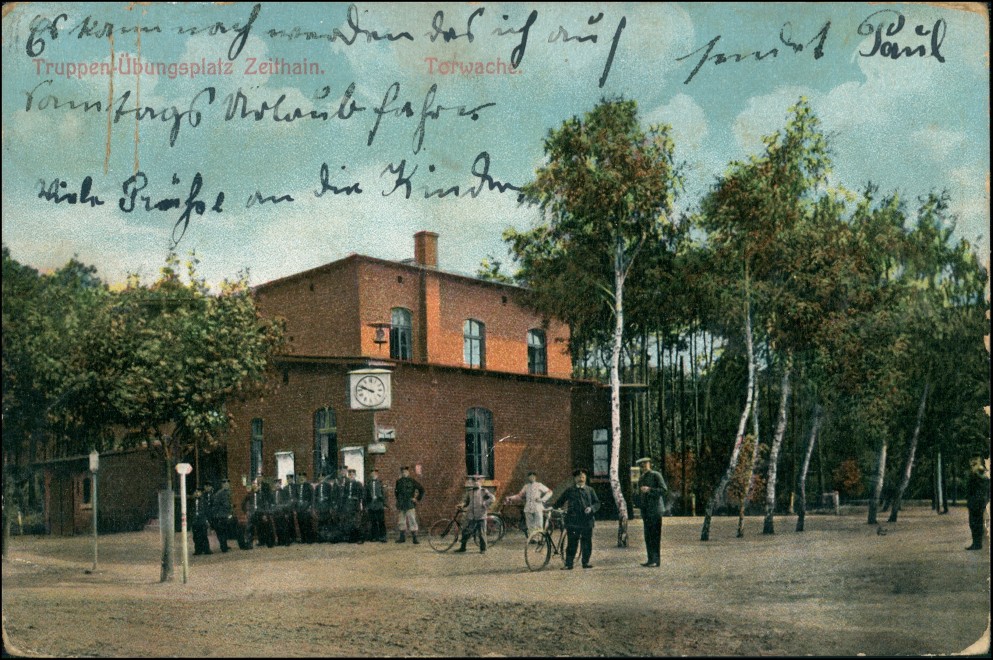 Es kann nach werden das ich auf
sendet Paul
Truppen-Übungsplatz Zeithain. Torwache.
Samstags Urlaub fahre
Viele Grüße an die Kinder